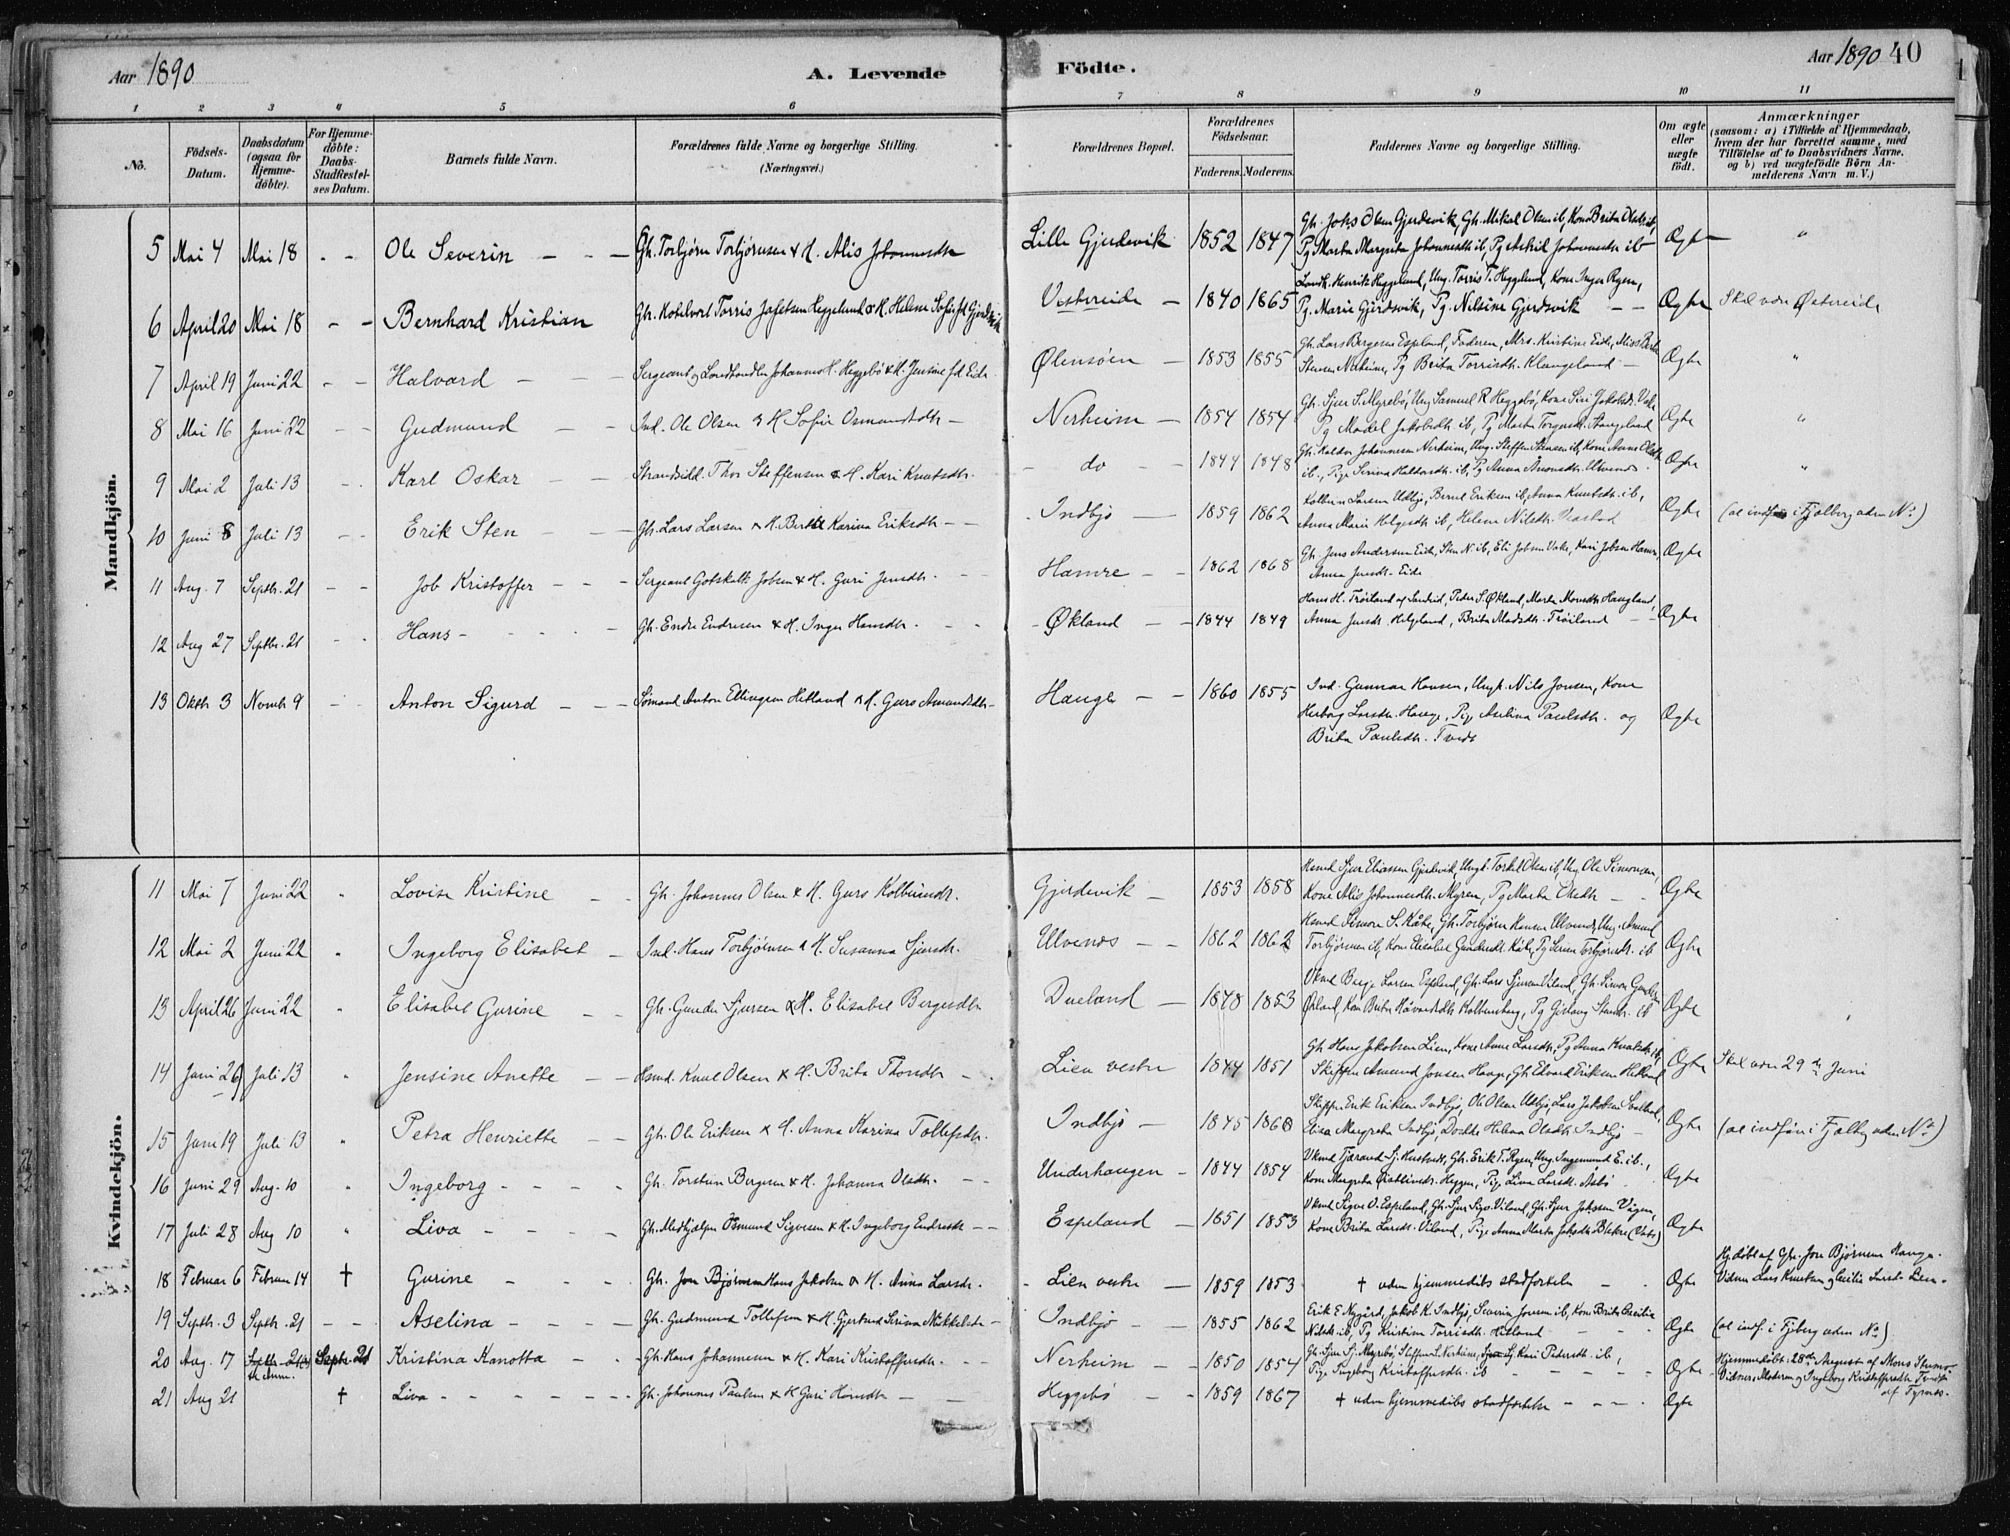 Aar 1890
A. Levende
Födte.
Aar 1890 40
1 2 3 4 5 6 7 8 9 10 11
No.
Födsels-Datum.
Daabsdatum (ogsaa for Hjemme-döbte).
For Hjemme-döbte: Daabs-Stadfæstel-ses Datum.
Barnets fulde Navn.
Forældrenes fulde Navne og borgerlige Stilling.
(Næringsvei.)
Forældrenes Bopæl.
Forældrenes Födselsaar.
Faderens. Moderens.
Faddernes Navne og borgerlige Stilling.
Om ægte eller uægte födt.
Anmærkninger
(saasom: a) i Tilfælde af Hjemmedaab,
hvem der har forrettet samme, med
Tilföielse af to Daabsvidners Navne.
og b) ved uægtefödte Börn An-
melderens Navn m. V.)
Mandkjön.
5 Mai 4 Mai 18 - - Ole Severin - - Gh. Torbjørn Torbjørnsen & H. Alis Johannesdtr Lille Gjerdevik 1852 1847 Gh. Johs Olsen Gjerdevik, Gh. Mikal Olsen ib, Kone Brita Olsdtr ib,
Pg Marta Margreta Johannesdtr ib, Pg Astrid Johannesdtr ib Ægte "
6 April 20 Mai 18 - - Bernhard Kristian Torris Jafetsen Heggelund & H. Helene Sofie Vestereide - 1840 1865 Landh. Henrik Heggelund, Ung. Torris T. Heggelund, Kone Inger Rygen,
Pg. Marie Gjerdsvik, Pg. Nelsine Gjerdsvik - - Ægte Skal være Østereide
7 April 19 Juni 22 - - Halvard - - Sergeant og Landhandler Johannes H. Heggebö & H. Jensine fd Eide Ølensöen - 1853 1855 Gh. Lars Bergesen Espeland, Faderen, Mrs. Kristine Eide, Miss
Nerheim, Pg Brita Torrisdtr. Klungeland - Ægte "
8 Mai 16 Juni 22 - - Gudmund - - Ind. Ole Olsen & H. Sofie Osmundsdtr - Nerheim - 1854 1854 Gh. Sjur S. Myrebö, Ung Samuel R Heggebö, Kone Siri Jakobsdtr.
Pg Madel Jakobsdtr ib, Pg Marta Stangeland Ægte "
9 Mai 2 Juli 13 - - Karl Oskar - - Strandsidd. Thor Steffensen & H. Kari Knutsdtr. - do - 1844 1848 Gh. Haldor Johannesen Nerheim, Ung. Steffen Stensen ib, Kone Anne Olsdtr
ib., Pige Serina Haldorsdtr. ib, Pg Anna Ulvenes. Ægte "
10 Juni 8 Juli 13 - - Erik Sten - - Gh. Lars Larsen & H. Berthe Karina Eriksdtr - - Indbjo - 1859 1862 Kolbein Larsen Udbjo, Bernt Eriksen ib, Anna Knutsdtr. ib,
Anna Marie Helgesdtr ib, Helene Nilsdtr. Ægte (al indf i Fjelberg uden No)
11 Aug. 7 Septbr. 21 - - Job Kristoffer - - - Sergeant Gotskalk Jobsen & H. Guri Jensdtr. - - Hamre - - 1862 1868 Gh. Jens Andersen Eide, Sten N. ib, Eli Jobsen Vake, Kari Jobsen Hamre,
Anna Jensdtr. Eide Ægte
12 Aug 27 Septbr. 21 - - Hans - - - - Gh. Endre Endresen & H. Inger Hansdtr. - - - Økland - - 1844 1849 Hans H. Tröiland af Sandeid, Peder S. Økland, Marta Monsdtr Haugland,
Anna Jensdtr. Helgeland, Brita Madsdtr. Tröiland - Ægte
13 Oktbr 3 Novbr 9 - - Anton Sigurd - - - Sömand Anton Ellingsen Hetland & H. Guro Amundsdtr - Hauge - - 1860 1855 Ind. Gunnar Hansen, Ungk. Nils Jonsen, Kone
Herborg Larsdtr. Hauge, Pige Aselina Paulsdtr. og
Brita Paulsdtr. Tvedt Ægte
Kvindekjön.
11 Mai 7 Juni 22 " Lovise Kristine - - Gh. Johannes Olsen & H. Guro Kolbeinsdtr. Gjerdevik - 1853 1858 Husmd Sjur Eliassen Gjerdevik, Ungk. Torkel Olsen ib, Ung Ole Simonsen,
Kone Alis Johannesdtr. Myren, Pg Marta Olsdtr - - Ægte
12 Mai 2 Juni 22 " Ingeborg Elisabet - Ind. Hans Torbjörnsen & H. Susanna Sjursdtr. Ulvenes - - 1862 1862 Husmd Simon S. Kåte, Gh. Torbjörn Hansen Ulvenes, Ung. Amund
Torbjörnsen ib, Kone Elisabet Kåte, Pg Torbjörnsdtr. ib Ægte
13 April 26 Juni 22 " Elisabet Gurine - - Gh. Gunder Sjursen & H. Elisabet Bergesdtr Dueland - 1848 1853 Vkmd Berge Larsen Espeland, Gh. Lars Sjursen Viland, Gh. Simon
Økland, Kone Brita Håvardsdtr Kolbensberg, Pg ib Ægte
14 Juni 26 Juli 13 " Jensine Anette - - Husmd. Knut Olsen & H. Brita Thorsdtr - - Lien vestre 1844 1851 Gh Hans Jakobsen Lien, Kone Anne Larsdtr, Pg Anna Knutsdtr ib,
Skipper Amund Jonsen Hauge, Gh Edvard Eriksen Hetland Ægte Skal være 29de Juni
15 Juni 19 Juli 13 " Petra Henriette - - Gh. Ole Eriksen & H. Anna Karina Tollefsdtr. Indbjo - 1845 1860 Skipper Erik Eriksen Indbjo, Ole Olsen Udbjo, Lars Jakobsen
Elisa Margreta Indbjo, Dorthe Helena Olsdtr Indbjo - Ægte (al indfön i Fjelbg uden No)
16 Juni 29 Aug. 10 " Ingeborg - - - - Gh. Torstein Bergesen & H. Johanna Olsdtr. - - Underhaugen - 1844 1854 Vkmd Tjerand Sj. Hustveit, Gh. Erik T. Rygen, Ung Ingemund E. ib.,
Kone Margreta Heggen, Pige Lina Larsdtr. Aabö Ægte
17 Juli 28 Aug 10 " Liva - - - - Gh. Medhjælper Osmund Sigvesen & H. Ingeborg Endresdtr - - Espeland - 1851 1853 Vkmd Sigve O. Espeland, Gh. Sjur Sigv. Viland, Gh. Sjur Jakssen Vågen,
Kone Brita Larsdtr. Viland, Pige Anna Marta Blekre (Vats) Ægte
18 Februar 6 Februar 14 † Gurine - - - Gh. Hans Jakobsen & H. Anna Larsdtr. - Lien vestre - 1859 1853 † uden hjemmedåbs stadfestelse - - Ægte Hjdöbt af Gh. Jon Björnsen Hauge.
Vidner Lars Knutsen og Cecilie Larsdtr Lien -
19 Septbr. 3 Septbr. 21 - - Aselina - - - - Gh. Gudmund Tollefsen & H. Gjertrud Serina Mikkelsdtr - Indbjo - - 1855 1862 Erik E. Nygård, Jakob K. Indbjo, Severin Jonsen ib, Kone Brita Cecilie
Nilsdtr ib, Pg Kristine Torrisdtr. Hetland - - Ægte (al indf. i Fjberg uden No)
20 Aug. 17 Septbr. 21 Kristina Kanotta - - Gh. Hans Johannesen & H. Kari Kristoffersdtr. - - Nerheim - - 1850 1854 Gh. Sjur Sj. Myrebö, Steffen S. Nerheim, Kari Pedersdtr. ib,
Pige Ingeborg Kristoffersdtr. ib - - - Ægte Hjemmedöbt 28de August af Mons
th Anm.
Vidner, Moderen og Ingeborg Kristoffersdtr
af
21 Aug 21 † Liva - - - - - Gh. Johannes Paulsen & H Guri Hansdtr - - Heggebö - - 1859 1867 † uden hjemmedåbs stadfestelse - - - Ægte